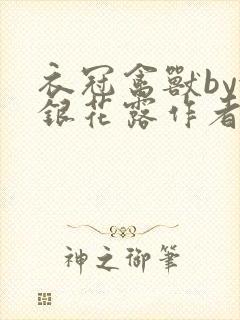 衣冠禽獸by
銀花露作者
神之御筆